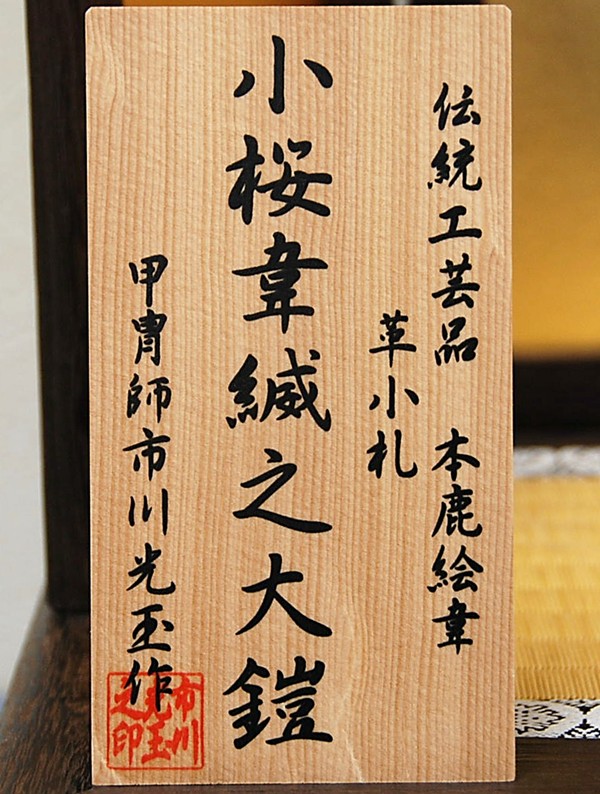 伝統工芸品 本鹿絵韋
革小札
小桜韋縅之大鎧
甲冑師市川光玉作
市川光玉之印